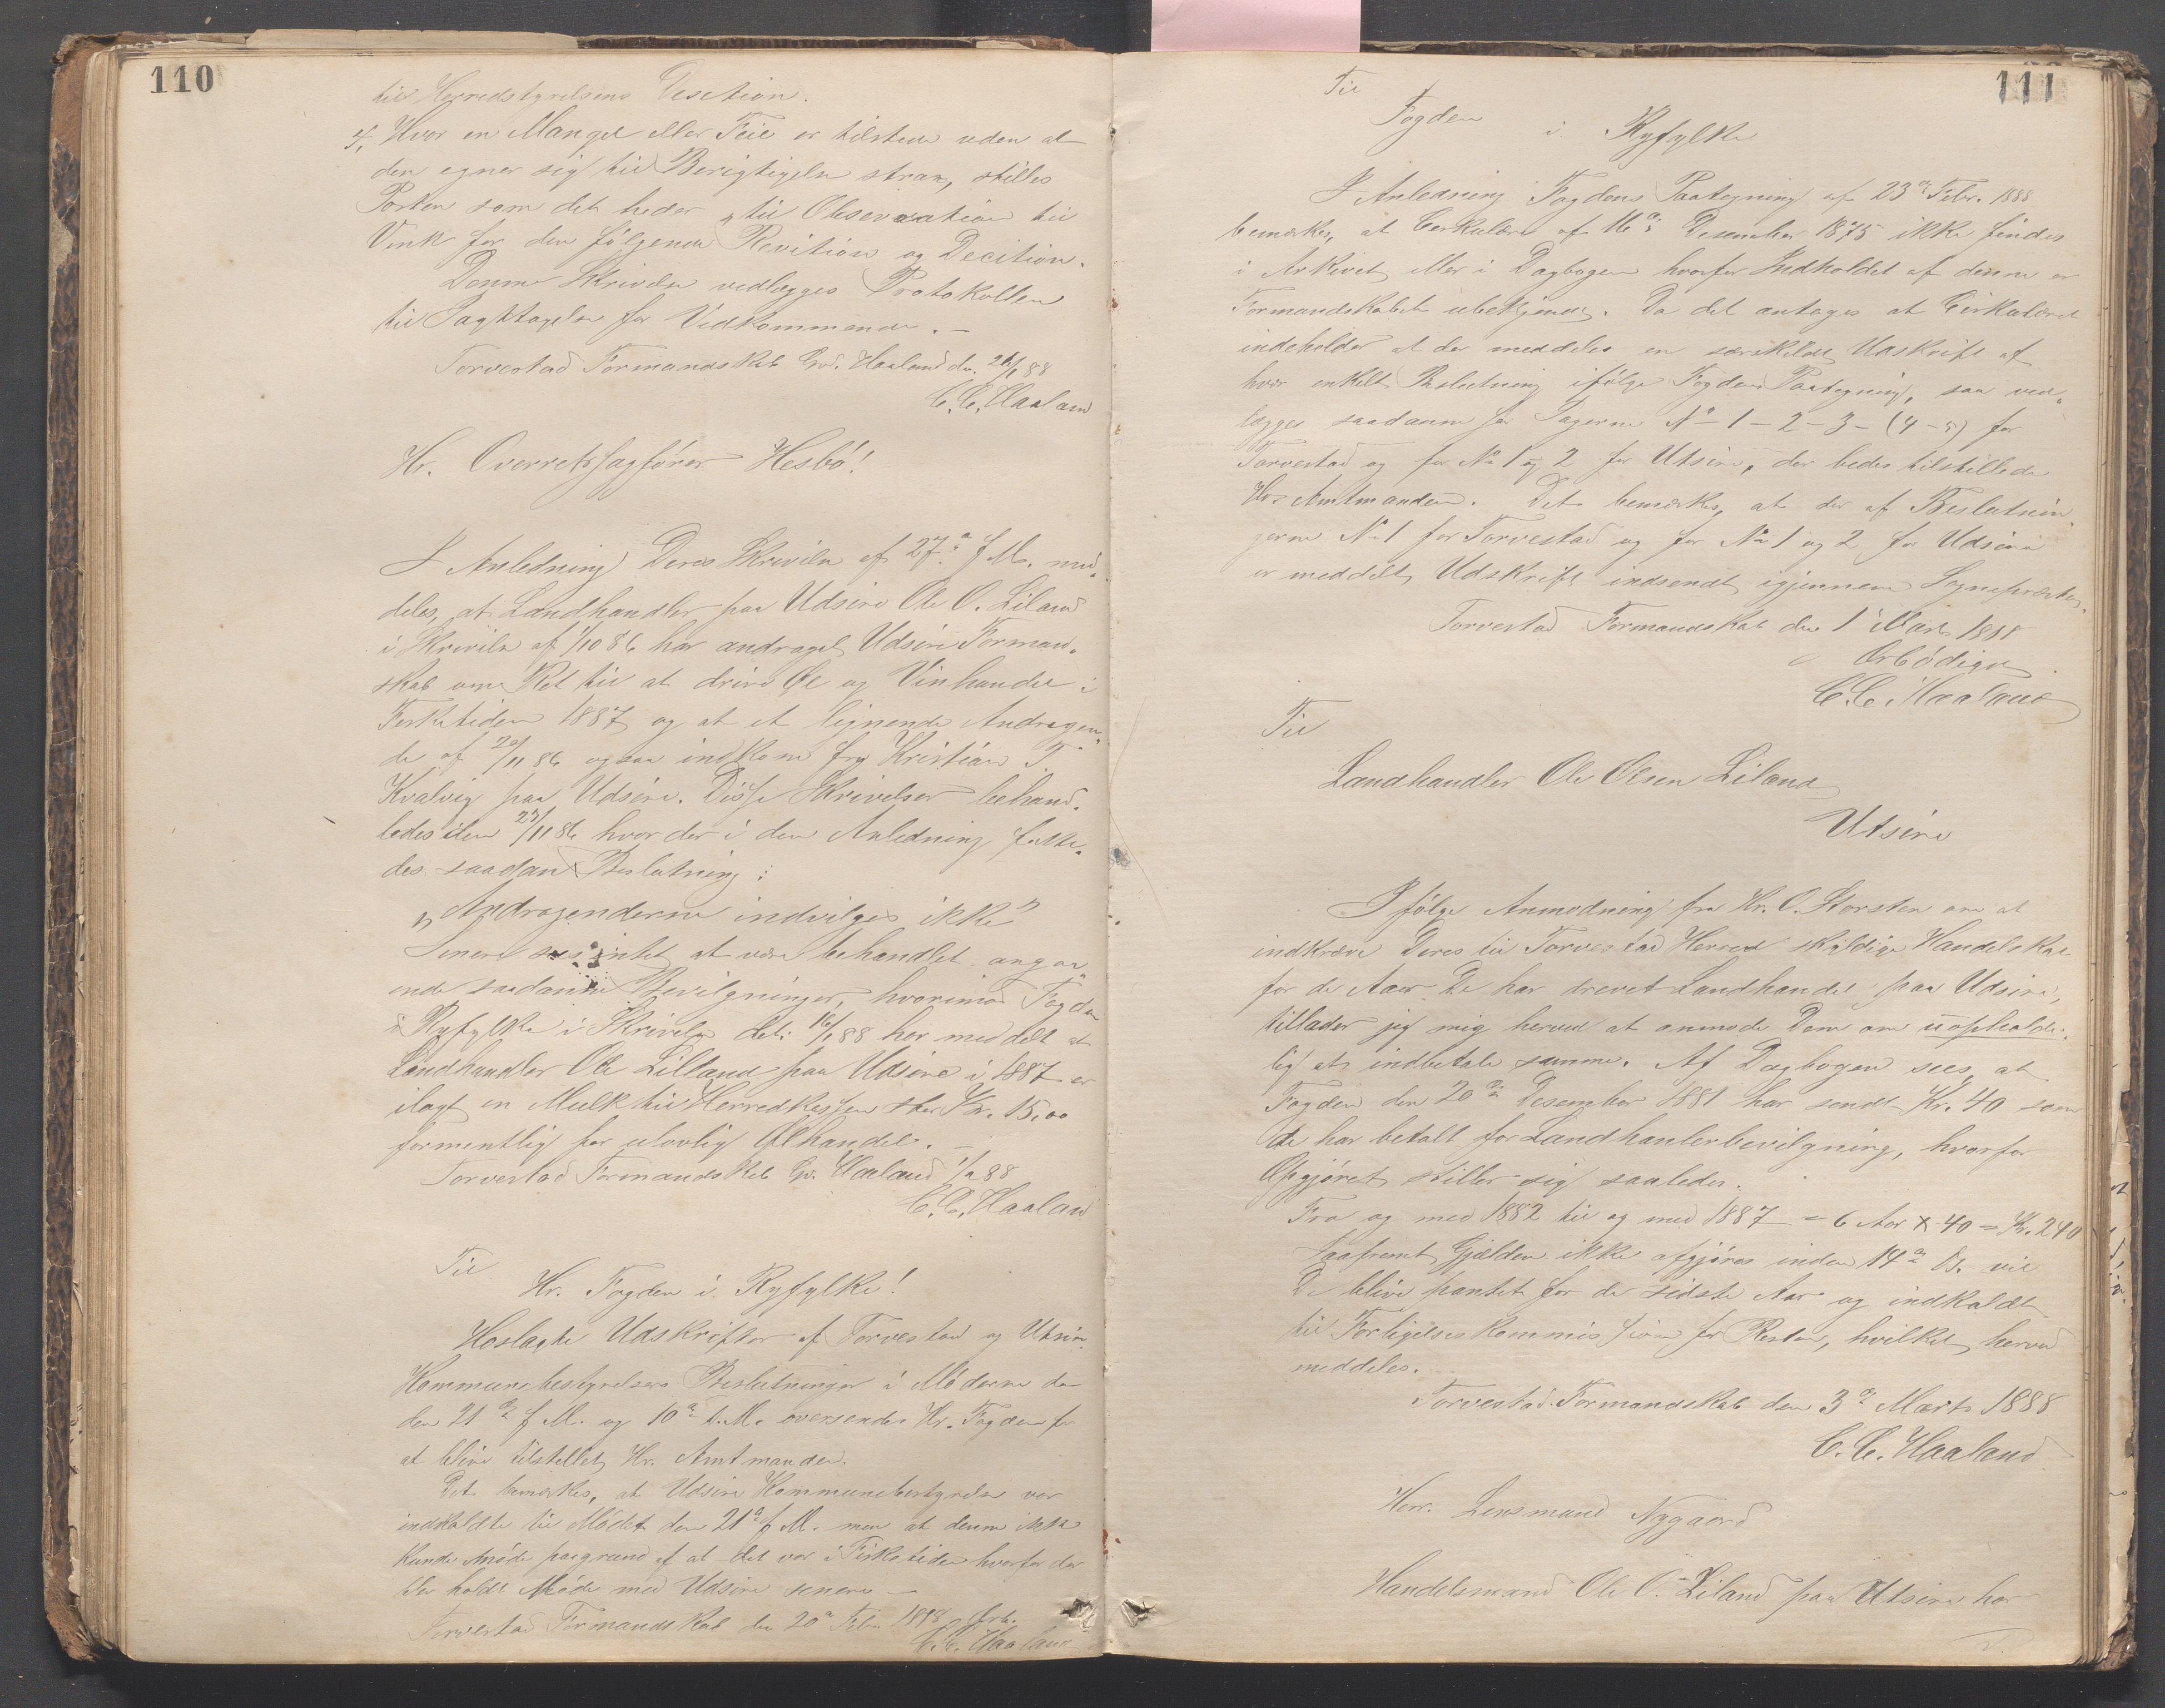 110
til Herredstyrelsens Desition.
4, Hvor en Mangel eller Feil er tilstede uden at
den egner sig til Berigtigelse strax, stilles
Posten som det heder "til Observation til
Vink for den følgende Revition og Decition.
Denne Skrivelse vedlægges Protokollen
til Iagttagelse for Vedkommende. –
Torvestad Formandskab Grd. Haaland den 26/1 88
C. C. Haaland
Hr. Overretssagfører Hesbö!
I Anledning Deres Skrivelse af 27de f. M. med-
deles, at Landhandler paa Udsire Ole O. Liland
i Skrivelse af 1/10 86 har andraget Udsire Forman-
skab om Ret til at drive Øl og Vinhandel i
Fisketiden 1887 og at et lignende Andragen-
de af 20/11 86 ogsaa indkom fra Kristian T.
Kvalvig paa Udsire. Disse Skrivelser behand-
ledes den 23/11 86 hvor der i den Anledning fatte-
des saadan Beslutning:
"Andragenderne indvilges ikke"
Senere sees intet at være behandlet angaa-
ende saadanne Bevilgninger, hvorimod Fogden
i Ryfylke i Skrivelse det: 16/1 88 har meddelt at
Landhandler Ole Lilland paa Udsire i 1887 er
ilagt en Mulkt til Herredkassen stor Kr. 15,00
formentlig for ulovlig Ølhandel. –
Torvestad Formandskab Grd. Haaland 1/2 88
C. C. Haaland
Til
Hr. Fogden i Ryfylke!
Hoslagte Udskrifter af Torvestad og Utsire
Kommunebestyrelsers Beslutninger i Møderne den
den 21de f. M. og 10de d. M. oversendes Hr. Fogden for
at blive tilstillet Hr. Amtmanden.
Det bemærkes, at Udsire Kommunebestyrelse var
indkaldte til Mødet den 21de f. M. men at denne ikke
kunde møde paagrund af at det var i Fisketiden hvorfor der
blev holdt Møde med Udsire senere –
Torvestad Formandskab den 20de Febr. 1888 Erb.
C. C. Haaland
111
Til
Fogden i Ryfylke
I Anledning Fogdens Paategning af 23de Febr. 1888
bemærkes, at Cerkulære af 16de Desember 1875 ikke findes
i Arkivet eller i Dagbogen hvorfor Indholdet af denne er
Formandskabet ubekjendt. Da det antages at Cirkulæret
indeholder at der meddeles en særskildt Udskrift af
hver enkelt Beslutning ifølge Fogdens Paategning, saa ved-
lægges saadanne for Sagerne No 1 – 2 – 3 – (4 – 5) for
Torvestad og for No 1 og 2 for Utsire, der bedes tilstillede
Hr. Amtmanden. Det bemærkes, at der af Beslutnin-
gerne No 1 for Torvestad og for No 1 og 2 for Udsire
er meddelt Udskrift indsendt igjennem Sognepræsten.
Torvestad Formandskab den 1 Marts 1888
Ærbödigst
C. C. Haaland
Til
Landhandler Ole Olsen Liland
Utsire
Ifølge Anmodning fra Hr. O. Storsten om at
indkræve Deres til Torvestad Herred skyldige Handelskat
for de Aar De har drevet Landhandel paa Udsire,
tillader jeg mig herved at anmode Dem om uopholde-
lig at indbetale samme. Af Dagbogen sees, at
Fogden den 20de Desember 1881 har sendt Kr. 40 som
de har betalt for Landhanlerbevilgning, hvorfor
Opgjøret stiller sig saaledes:
Fra og med 1882 til og med 1887 = 6 Aar x 40 = Kr. 240
Saafremt Gjælden ikke afgjøres inden 14de Ds. vil
De blive pantet for de sidste Aar og indkaldt
til Forligelseskommission for Resten, hvilket herved
meddeles.
Torvestad Formandskab den 3de Marts 1888
C. C. Haaland
Herr. Lensmand Nygaard
Handelsmand Ole O. Liland paa Utsire har